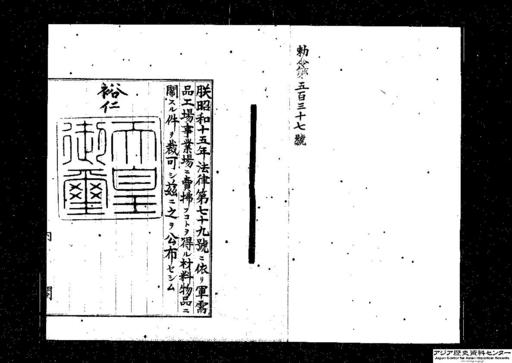 勅令第五百三十七號
朕昭和十五年法律第七十九號ニ依リ軍需
品工場事業場ニ賣拂フコトヲ得ル材料物品ニ
關スル件ヲ裁可シ茲ニ之ヲ公布セシム
裕仁
天皇
御璽
内閣
アジア歴史資料センター
Japan Center for Asian Historical Records